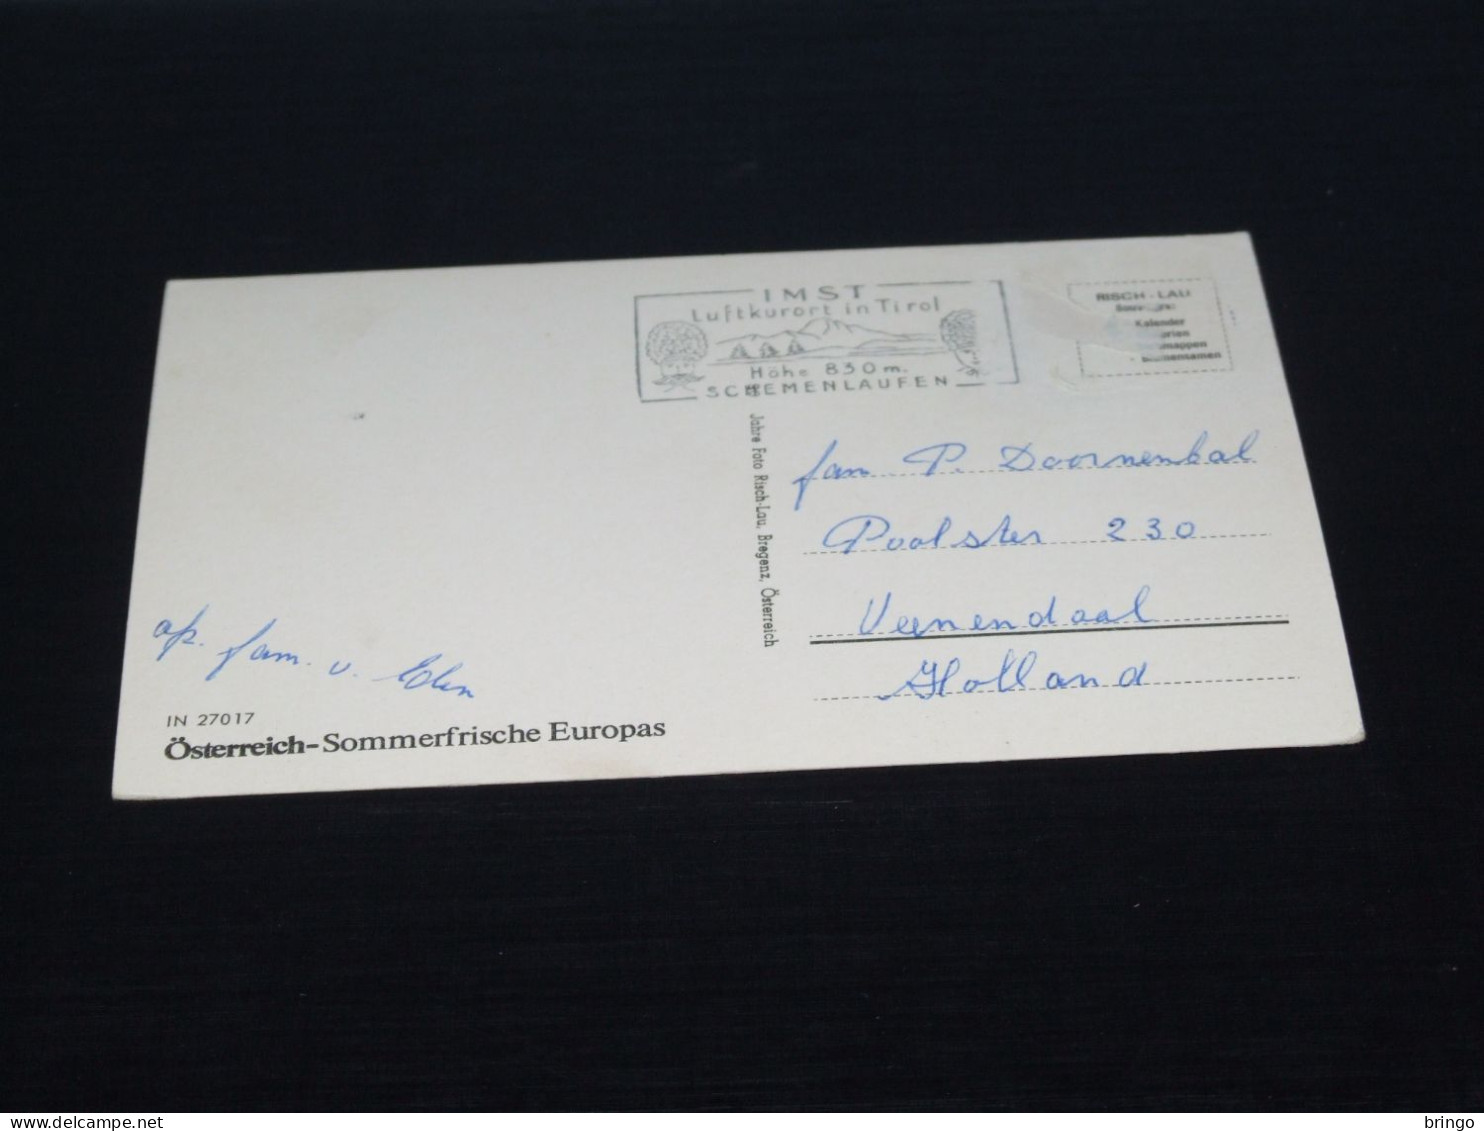 IMST
Luftkurort in Tirol
Höhe 830 m.
SCHEMENLAUFEN
RISCH-LAU
Kalender
Jahre Foto Risch-Lau, Bregenz, Österreich
fam P. Doornenbal
Poolster 230
Veenendaal
Holland
afz. fam. v.
IN 27017
Österreich-Sommerfrische Europas
delcampe.net
bringo